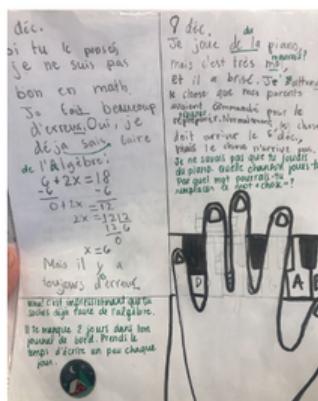 déc.
si tu le poses
je ne suis pas
bon en math
Je fait beaucoup
d'erreurs, Oui, je
déja sais faire
de l'algèbre:
6+2x=18
-6 -6
0+2x=12
2x=12
x=6
Mais il y a
toujours d'erreurs
Wow! C'est impressionnant que tu
saches déjà faire de l'algèbre.
Il te manque 2 jours dans ton
journal de bord. Prends le
temps d'écrire un peu chaque
jour.
8 déc.
du
Je joue de la piano,
mais c'est très
et il a brisé. Je
le chose que mes parents
avaient commandé pour le
réparer
Normalement, les chose
doit arrive le 5 déc,
mais le chose n'arrive pas.
Je ne savais pas que tu jouais
du piano. Quelle chanson joues-tu?
Par quel mot pourrais-tu
remplacer le mot «chose»?
D
A